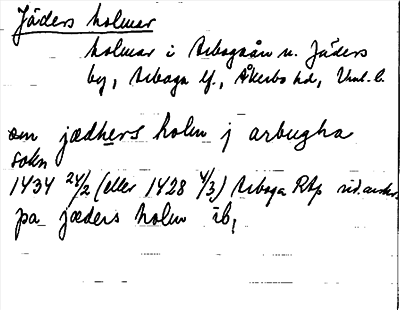 Jäders holmar
holmar i Arbogaån n. Jäders
by, Arboga lf., Åkerbo hd, Vml. l.
om jædhers holm j arbugha
sokn
1434 24/2 (eller 1428 4/3) Arboga Rtp
pa jæders holm ib,